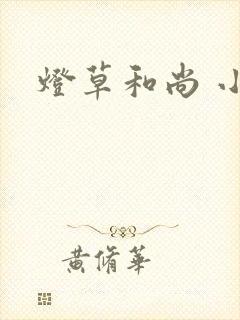 燈草和尚 小
黄脩華